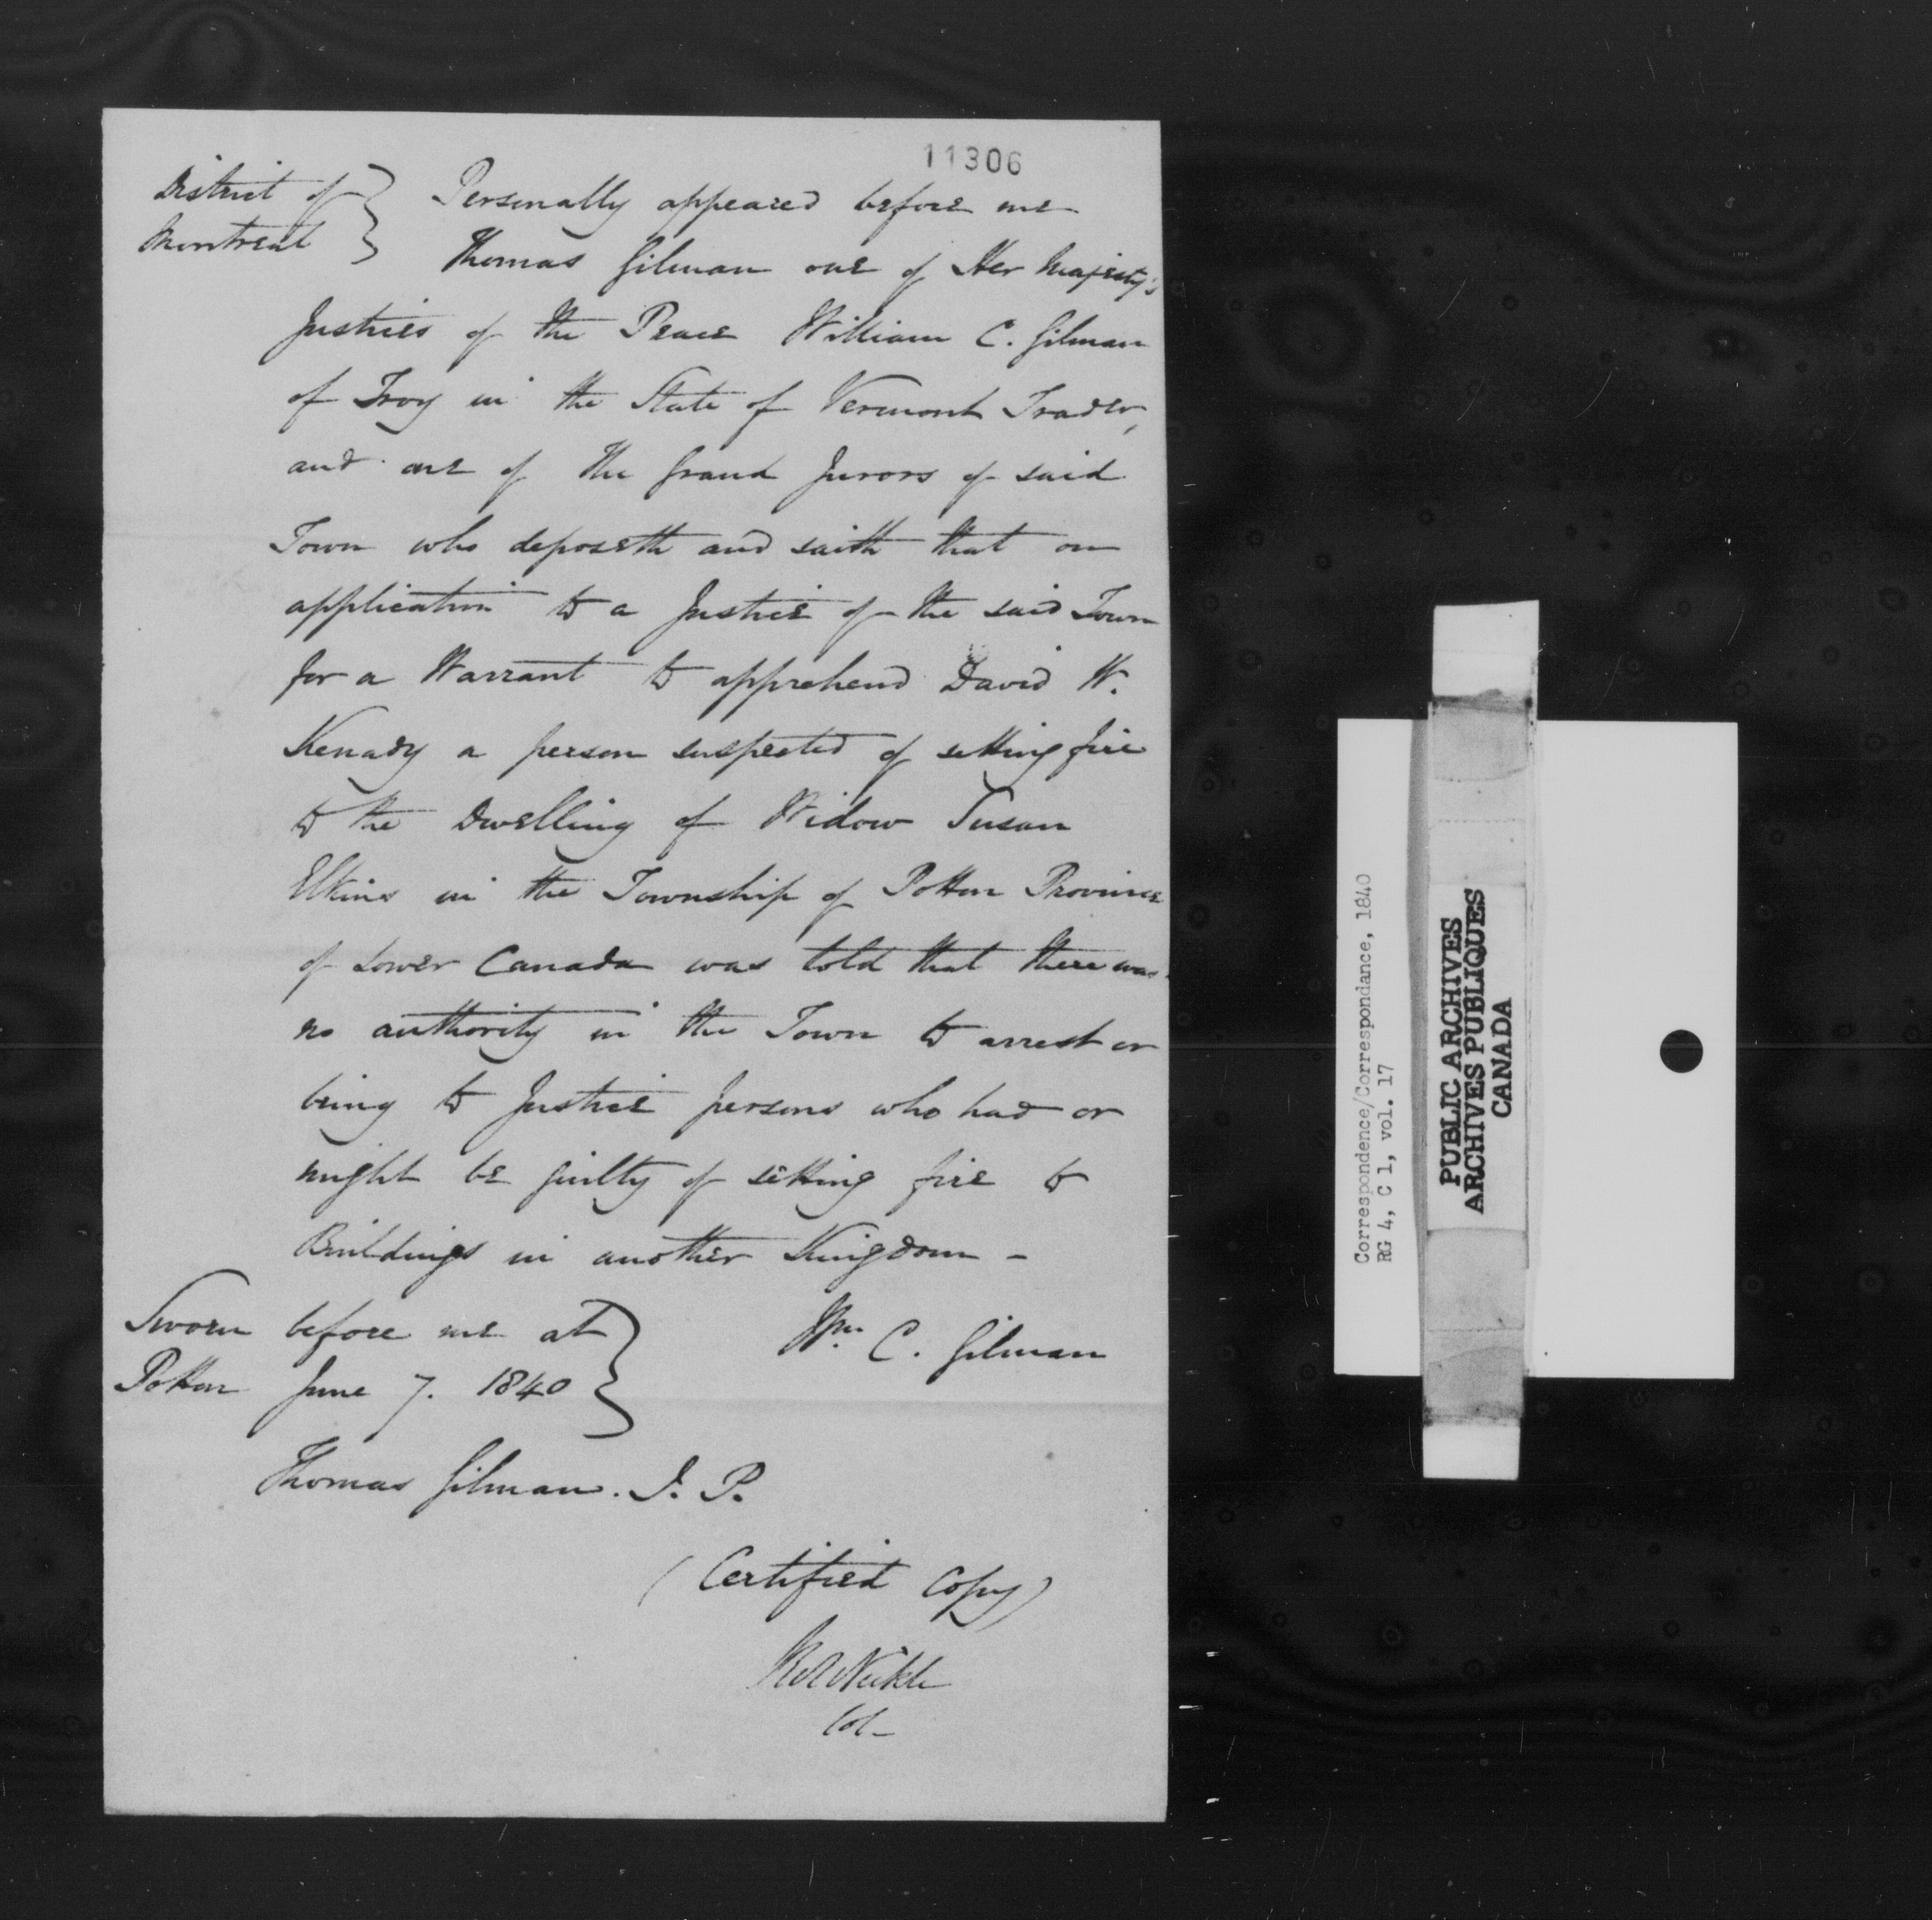 11306
District of } Personally appeared before me
Montreal } Thomas Gilman one of Her Majesty's
Justices of the Peace William C. Gilman
of Troy in the State of Vermont Trader,
and one of the Grand Jurors of said
Town who deposeth and saith that on
application to a Justice of the said Town
for a Warrant to apprehend David W.
Kenady a person suspected of setting fire
to the Dwelling of Widow Susan
Elkins in the Township of Potton Province
of Lower Canada was told that there was
no authority in the Town to arrest or
bring to Justice persons who had or
might be guilty of setting fire to
Buildings in another Kingdom -
Sworn before me at }
Potton June 7. 1840 }
Wm. C. Gilman
Thomas Gilman. J. P.
(Certified Copy)
Col-
Correspondence/Correspondance, 1840
RG 4, C 1, vol. 17
PUBLIC ARCHIVES
ARCHIVES PUBLIQUES
CANADA